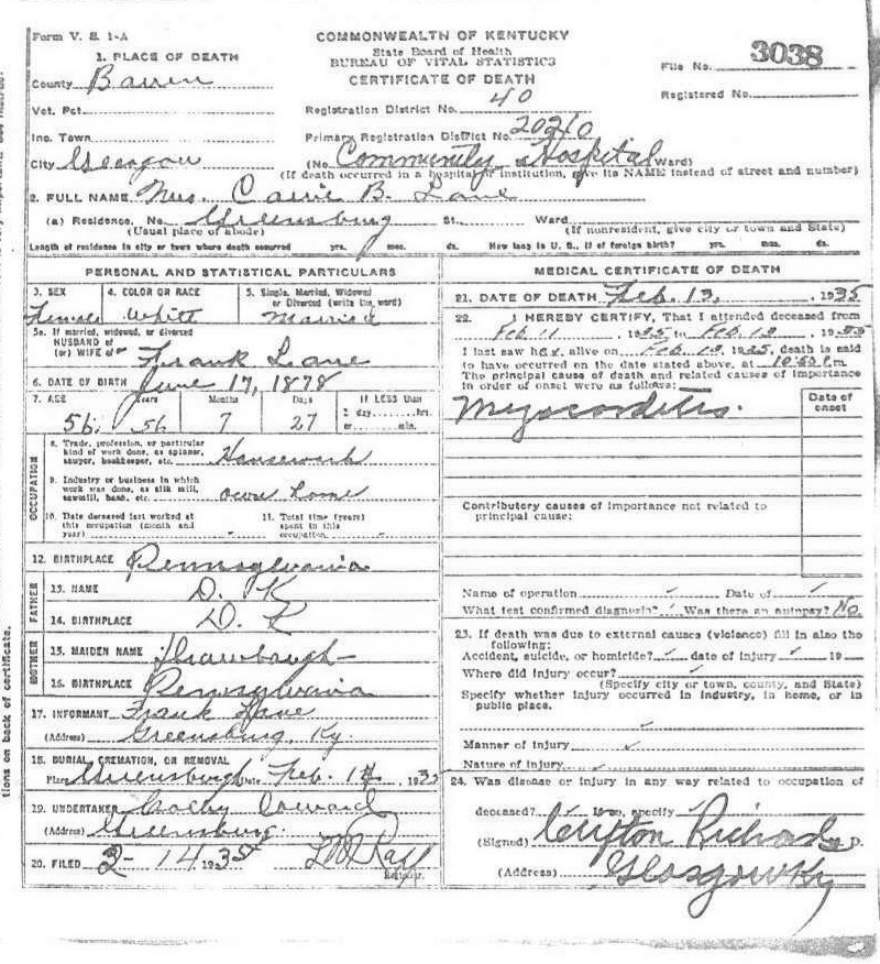 Form V. S. 1-A
COMMONWEALTH OF KENTUCKY
State Board of Health
BUREAU OF VITAL STATISTICS
CERTIFICATE OF DEATH
File No. 3038
Registered No.
1. PLACE OF DEATH
County Barren
Vot. Pct.
Registration District No. 40
Inc. Town
Primary Registration District No. 20210
City Glasgow
(No. Community Hospital Ward)
(If death occurred in a hospital or institution, give its NAME instead of street and number)
2. FULL NAME Mrs. Carrie B. Lane
(a) Residence, No. Greensburg St. Ward
(Usual place of abode) (If nonresident, give city or town and State)
Length of residence in city or town where death occurred yrs. mos. ds. How long in U. S., if of foreign birth? yrs. mos. ds.
PERSONAL AND STATISTICAL PARTICULARS
3. SEX 4. COLOR OR RACE 5. Single, Married, Widowed or Divorced (write the word)
Female White Married
5a. If married, widowed, or divorced
HUSBAND of
(or) WIFE of Frank Lane
6. DATE OF BIRTH June 17, 1878
7. AGE Years Months Days IF LESS than
56 56 7 27 1 day hrs. or min.
OCCUPATION
8. Trade, profession, or particular kind of work done, as spinner, sawyer, bookkeeper, etc. Housework
9. Industry or business in which work was done, as silk mill, sawmill, bank, etc. own home
10. Date deceased last worked at this occupation (month and year)
11. Total time (years) spent in this occupation
12. BIRTHPLACE Pennsylvania
FATHER
13. NAME D. K
14. BIRTHPLACE D. K
MOTHER
15. MAIDEN NAME
16. BIRTHPLACE Pennsylvania
17. INFORMANT Frank Lane
(Address) Greensburg, Ky.
18. BURIAL, CREMATION, OR REMOVAL
Place Greensburg Date Feb. 14, 1935
19. UNDERTAKER
(Address) Greensburg.
20. FILED 2-14 1935 Registrar.
MEDICAL CERTIFICATE OF DEATH
21. DATE OF DEATH Feb. 13, 1935
22. I HEREBY CERTIFY, That I attended deceased from
Feb 11, 1935 to Feb. 13, 1935
I last saw her alive on Feb. 13, 1935, death is said
to have occurred on the date stated above, at 10:50 P.m.
The principal cause of death and related causes of importance
in order of onset were as follows:
Date of onset
Myocarditis.
Contributory causes of importance not related to
principal cause:
Name of operation ✓ Date of ✓
What test confirmed diagnosis? ✓ Was there an autopsy? No
23. If death was due to external causes (violence) fill in also the
following:
Accident, suicide, or homicide? ✓ date of injury ✓ 19
Where did injury occur? ✓
(Specify city or town, county, and State)
Specify whether injury occurred in industry, in home, or in
public place.
✓
Manner of injury ✓
Nature of injury ✓
24. Was disease or injury in any way related to occupation of
deceased? ✓ If so, specify ✓
(Signed) Clifton Richards D.
(Address) Glasgow Ky
tions on back of certificate.